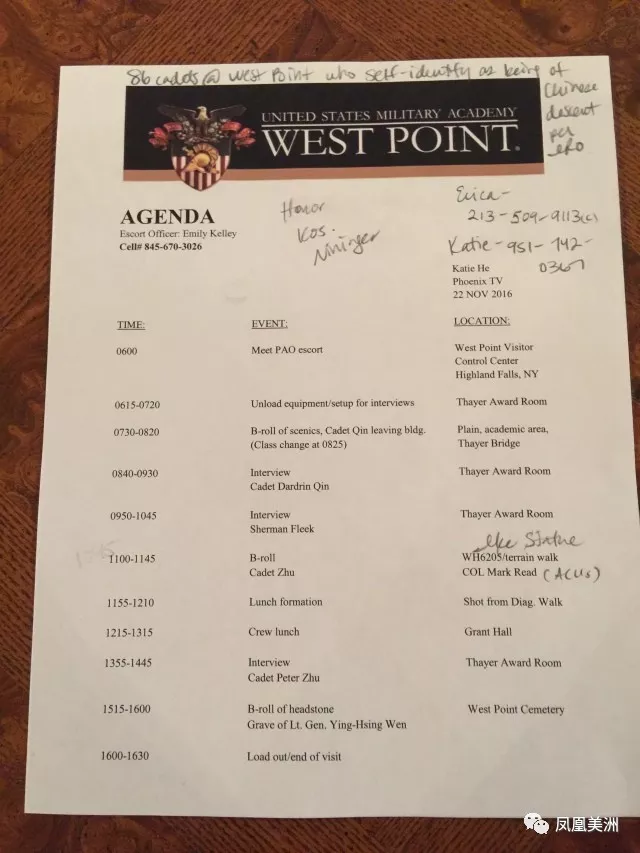 86 cadets @ West Point who self-identify as being of
Chinese
descent
per
UNITED STATES MILITARY ACADEMY
WEST POINT
AGENDA
Escort Officer: Emily Kelley
Cell# 845-670-3026
Honor
Kos.
Nininger
Erica-
213-509-9113(c)
Katie-951-742-
0367
Katie He
Phoenix TV
22 NOV 2016
TIME: EVENT: LOCATION:
0600 Meet PAO escort West Point Visitor
Control Center
Highland Falls, NY
0615-0720 Unload equipment/setup for interviews Thayer Award Room
0730-0820 B-roll of scenics, Cadet Qin leaving bldg. Plain, academic area,
(Class change at 0825) Thayer Bridge
0840-0930 Interview Thayer Award Room
Cadet Dardrin Qin
0950-1045 Interview Thayer Award Room
Sherman Fleek
Ike Statue
1100-1145 B-roll WH6205/terrain walk
Cadet Zhu COL Mark Read (ACUs)
1155-1210 Lunch formation Shot from Diag. Walk
1215-1315 Crew lunch Grant Hall
1355-1445 Interview Thayer Award Room
Cadet Peter Zhu
1515-1600 B-roll of headstone West Point Cemetery
Grave of Lt. Gen. Ying-Hsing Wen
1600-1630 Load out/end of visit
凤凰美洲